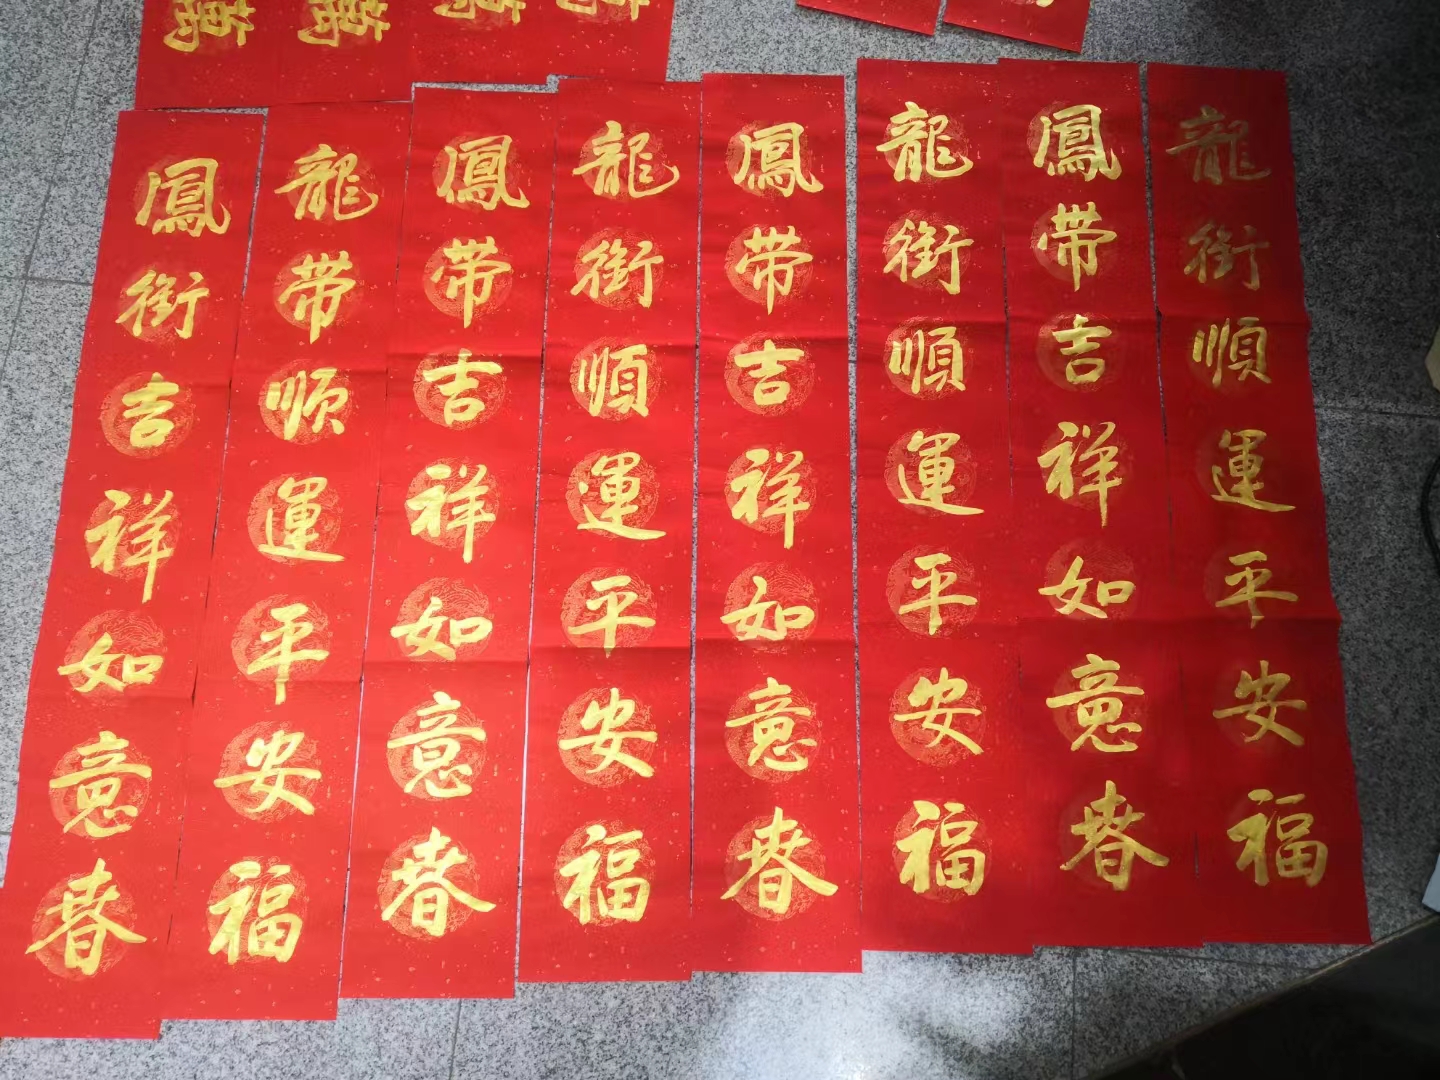 龍銜順運平安福
鳳带吉祥如意春
龍銜順運平安福
鳳带吉祥如意春
龍銜順運平安福
鳳带吉祥如意春
龍带顺運平安福
鳳銜吉祥如意春
萬
萬